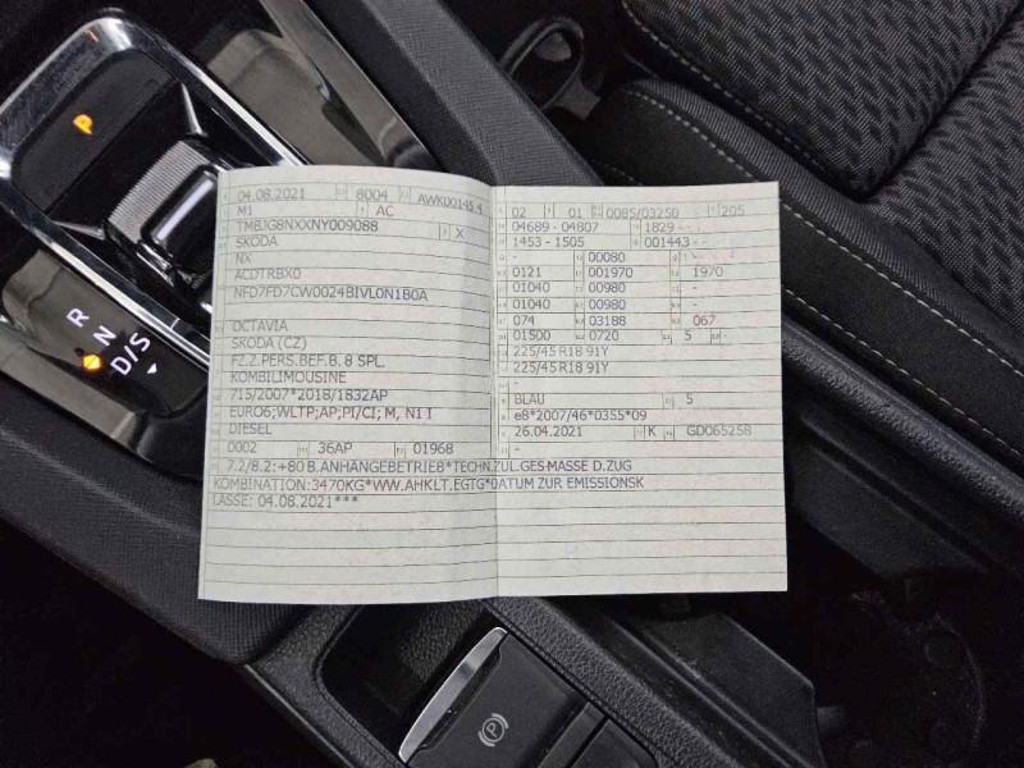 P
R
N
D/S
04.08.2021 8004 AWK00145 4
M1 AC
TMBJG8NXXNY009088 X
SKODA
NX
ACDTRBX0
NFD7FD7CW0024BIVL0N1B0A
OCTAVIA
SKODA (CZ)
FZ.Z.PERS.BEF.B. 8 SPL.
KOMBILIMOUSINE
715/2007*2018/1832AP
EURO6;WLTP;AP;PI/CI; M, N1 I
DIESEL
0002 36AP 01968
02 01 0085/03250 205
04689 - 04807 1829 - -
1453 - 1505 001443 - -
- 00080
0121 001970 1970
01040 00980 -
01040 00980 -
074 03188 067
01500 0720 5 -
225/45 R18 91Y
225/45 R18 91Y
-
-
BLAU 5
e8*2007/46*0355*09
26.04.2021 K GD065258
-
7.2/8.2:+80 B.ANHÄNGEBETRIEB*TECHN.ZUL.GES-MASSE D.ZUG
KOMBINATION:3470KG*WW.AHKLT.EGTG*DATUM ZUR EMISSIONSK
LASSE: 04.08.2021***
(P)